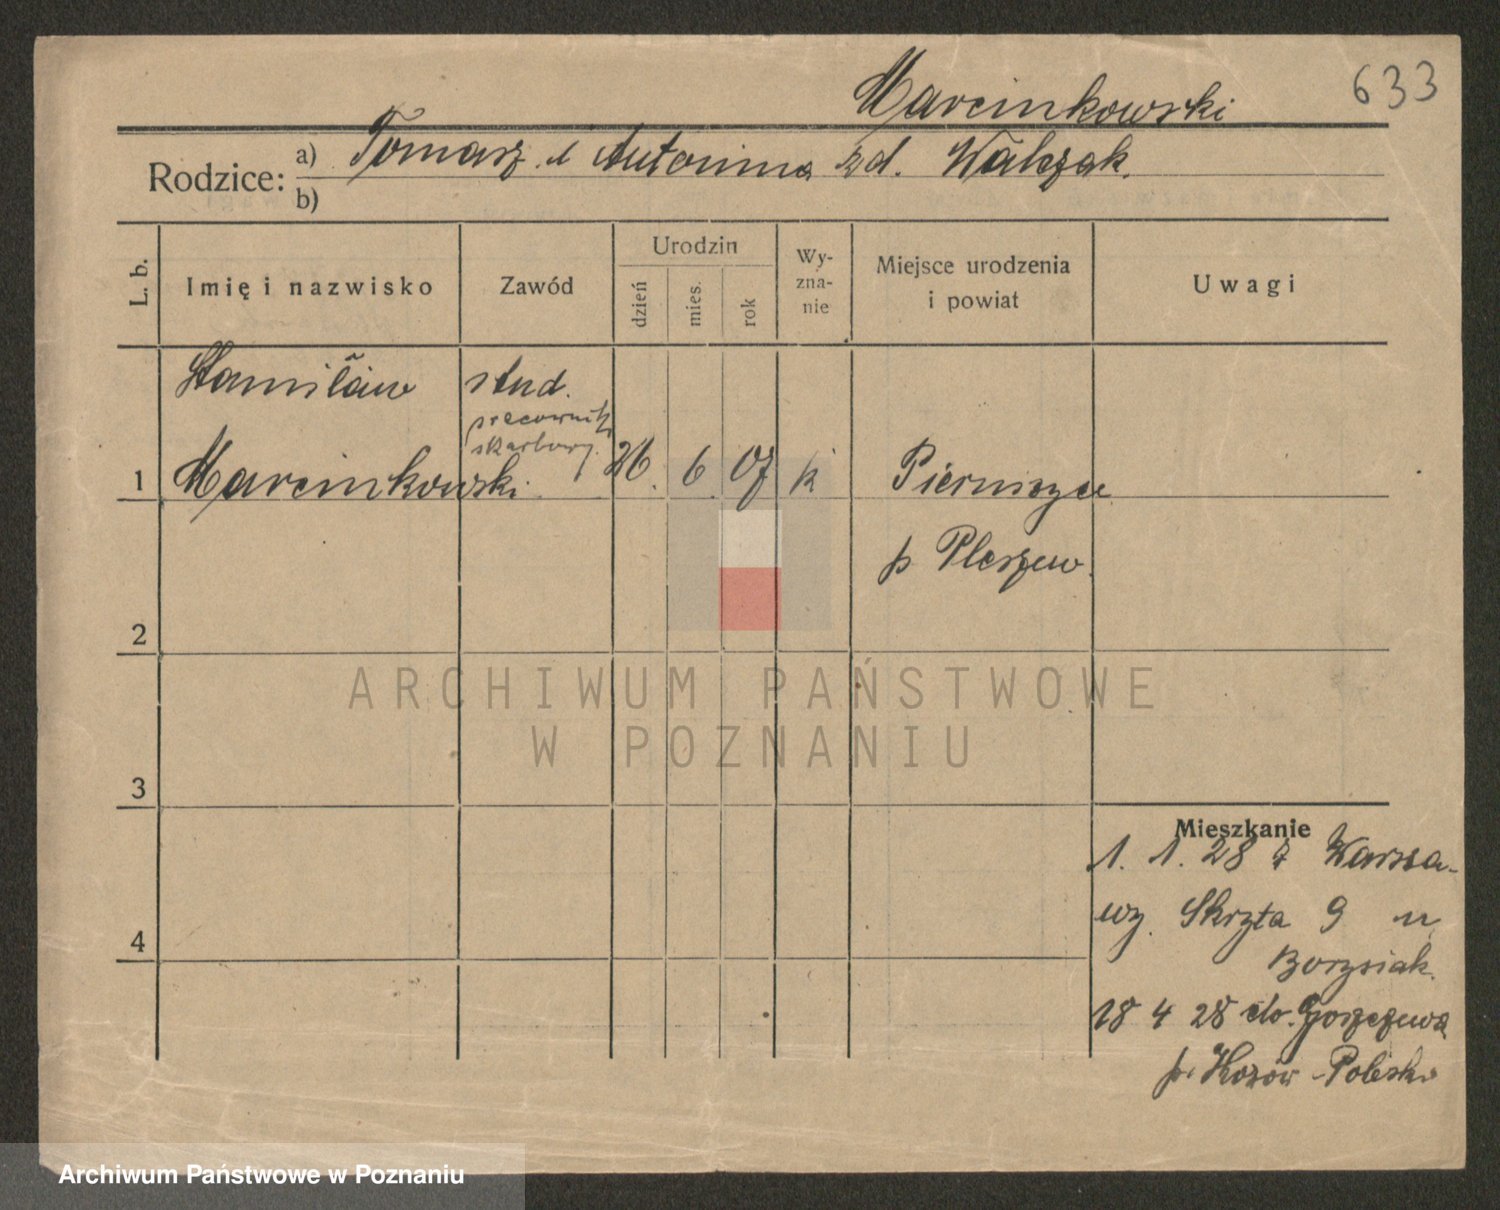 Marcinkowski
633
Rodzice:
a) Tomasz i Antonina zd. Walczak.
b)
L. b.
Imię i nazwisko
Zawód
Urodzin
dzień
mies.
rok
Wy-
zna-
nie
Miejsce urodzenia
i powiat
Uwagi
Stanisław
stud.
pracownik
skarbowy.
1
Marcinkowski
26. 6. 07
k
Pierszyce
p Pleszew.
2
3
4
Mieszkanie
1. 1. 28 z Warsza-
wy. Skryta 9 u
Borysiak.
18 4 28 do
p. Polesko
ARCHIWUM PAŃSTWOWE
W POZNANIU
Archiwum Państwowe w Poznaniu